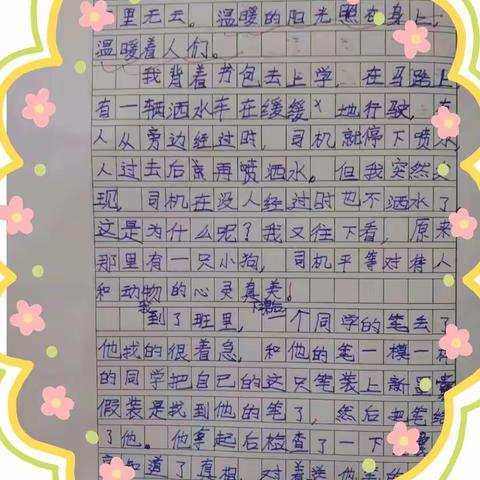 里无云。温暖的阳光照在身上,
温暖着人们。
我背着书包去上学,在马路上
有一辆洒水车在缓缓地行驶,有
人从旁边经过时,司机就停下喷水
人过去后京再喷洒水。但我突然
现,司机在没人经过时也不洒水了
这是为什么呢?我又往下看,原来
那里有一只小狗,司机平等对待人
和动物的心灵真美。
我到了班里,下课后一个同学的笔丢了
他找的很着急,和他的笔一模一样
的同学把自己的这只笔装上新
假装是找到他的笔了,然后把笔给
了他。他拿起后检查了一下
知道了真相,对着